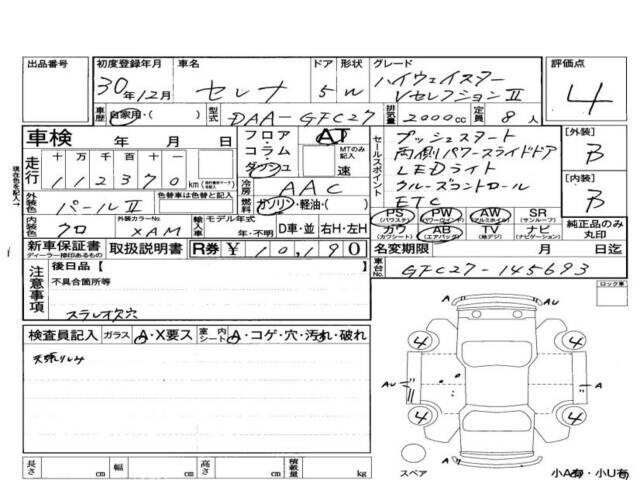 出品番号
初度登録年月
30年12月
車名
セレナ
ドア 形状
5 W
グレード
ハイウェイスター
VセレクションII
評価点
4
車歴
自家用・( )
型式
DAA-GFC27
排気量
2000cc
定員
8人
車検 年 月 日
走行
十 万 千 百 十 一
112370km
外装色
パールII
色替車は色替と記入
内装色
クロ
外装カラーNo
XAM
現在色を記入→
フロア・コラム・ダッシュ
AT
MTのみ記入
速
冷房
AAC
燃料
ガソリン・軽油・( )
輸入車
モデル年式
年・不明
D車・並
右H・左H
セールスポイント
プッシュスタート
両側パワースライドドア
LEDライト
クルーズコントロール
ETC
PS (パワステ)
PW (パワーウインド)
AW (アルミホイル)
SR (サンルーフ)
カワ (カワシート)
AB (エアバッグ)
TV (地デジ)
ナビ (ナビゲーション)
純正品のみ丸印
[外装]
B
[内装]
B
新車保証書
ディーラー捺印あるもの
取扱説明書
R券 ¥ 10,190
名変期限 月 日迄
車台No
GFC27-145693
注意事項
後日品【
不具合箇所等
ステレオ欠穴
ロック車
検査員記入
ガラス A・X要ス
室内シート A・コゲ・穴・汚れ・破れ
A
AU
AU
A
4
4
4
4
A
スペア
小A有・小U有
長さ cm
幅 cm
高さ cm
積載量 kg